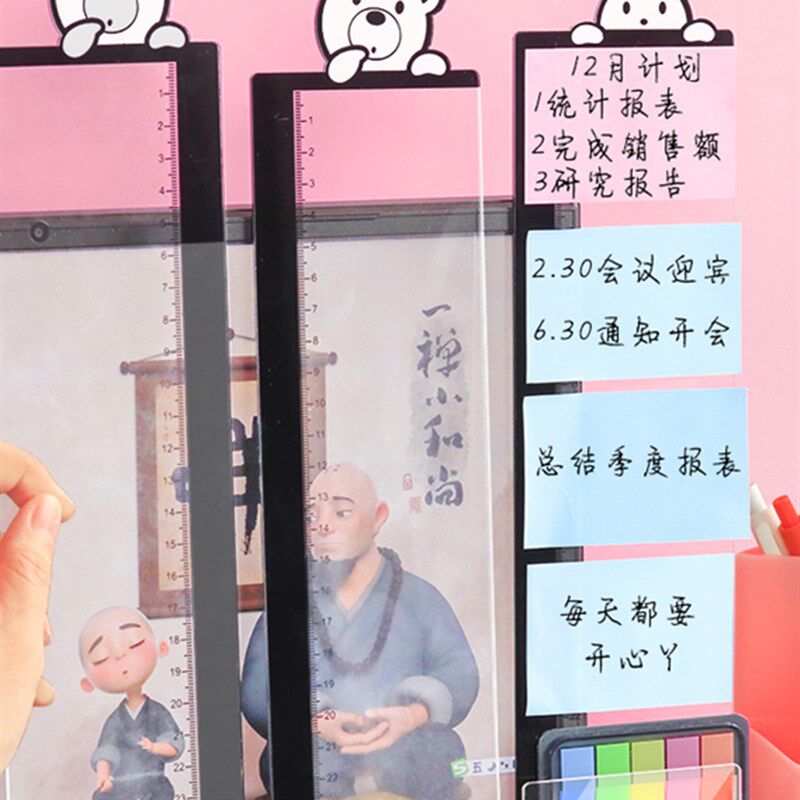 12月计划
1统计报表
2完成销售额
3研究报告
2.30会议迎宾
6.30通知开会
总结季度报表
每天都要
开心丫
一禅小和尚
禅
1
2
3
4
5
6
7
8
9
10
11
12
13
14
15
16
17
18
19
20
21
22
23
1
2
3
4
5
6
7
8
9
10
11
12
13
14
15
16
17
18
19
20
21
22
S五